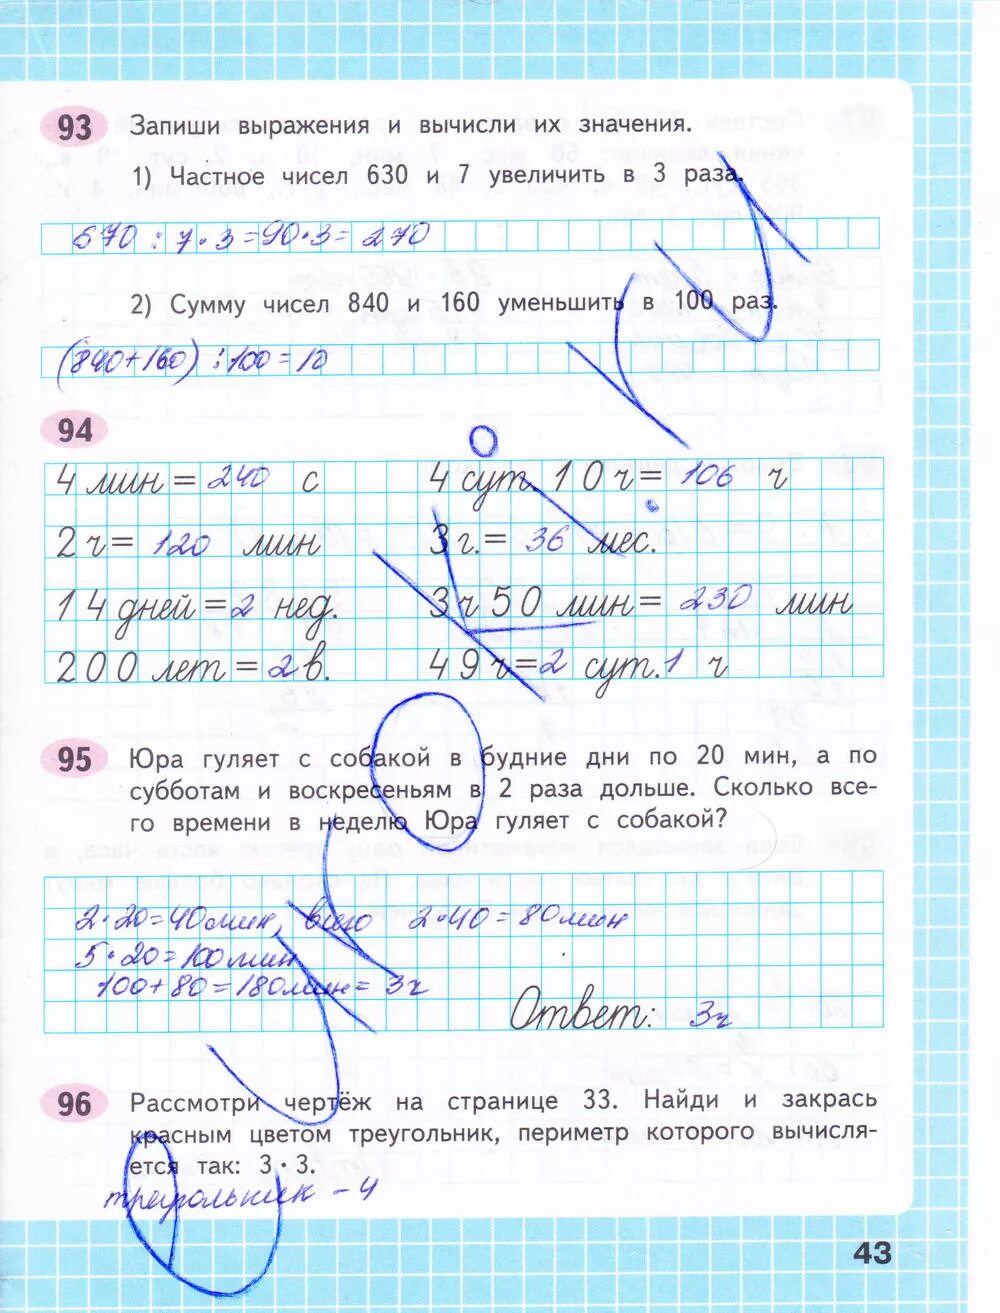 93 Запиши выражения и вычисли их значения.
1) Частное чисел 630 и 7 увеличить в 3 раза.
670 : 7 · 3 = 90 · 3 = 270
2) Сумму чисел 840 и 160 уменьшить в 100 раз.
(840 + 160) : 100 = 10
94
4 мин = 240 с 4 сут. 10 ч = 106 ч
2 ч = 120 мин 3 г. = 36 мес.
14 дней = 2 нед. 3 ч 50 мин = 230 мин
200 лет = 2 в. 49 ч = 2 сут. 1 ч
95 Юра гуляет с собакой в будние дни по 20 мин, а по
субботам и воскресеньям в 2 раза дольше. Сколько все-
го времени в неделю Юра гуляет с собакой?
2 · 20 = 40 мин, всего 2 · 40 = 80 мин
5 · 20 = 100 мин
100 + 80 = 180 мин = 3 ч
Ответ: 3 ч
96 Рассмотри чертёж на странице 33. Найди и закрась
красным цветом треугольник, периметр которого вычисля-
ется так: 3 · 3.
треугольник - 4
43